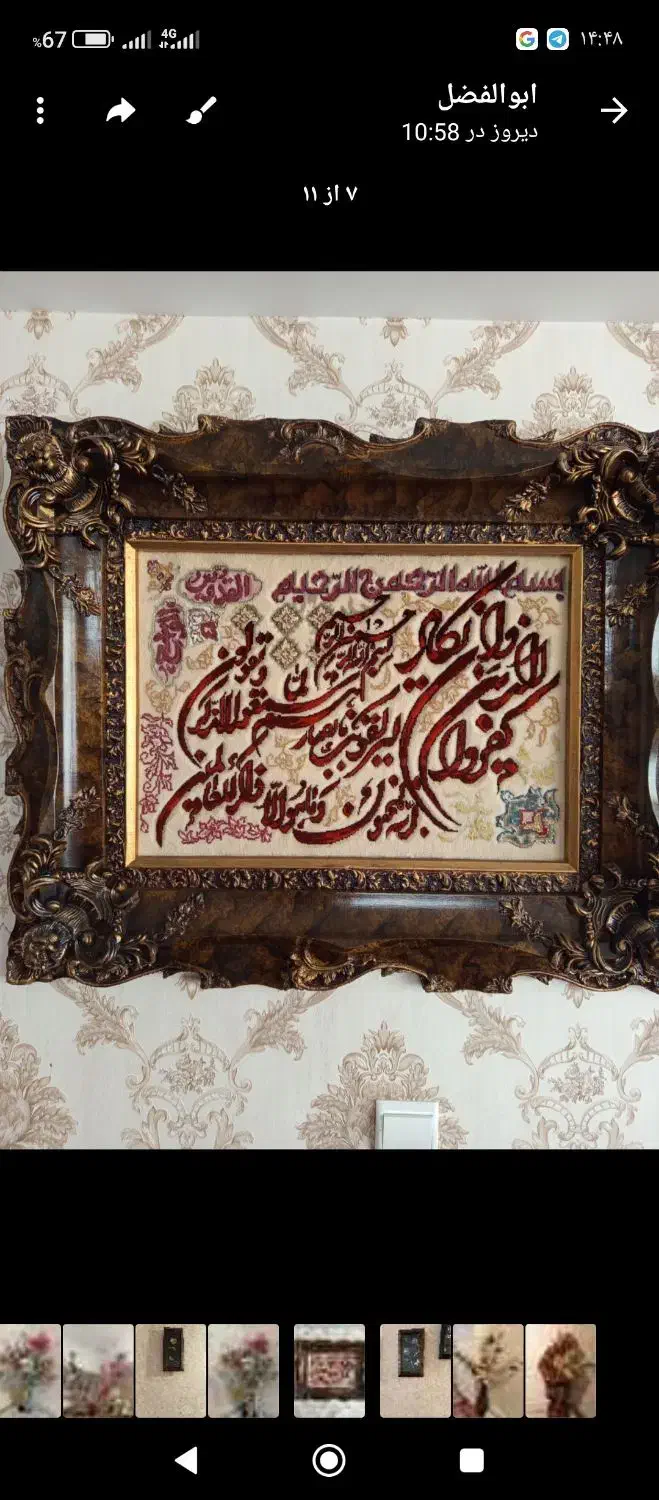 %67 4G ۱۴:۴۸
ابوالفضل
دیروز در 10:58
۷ از ۱۱
بسم الله الرحمن الرحیم
بسم الله الرحمن الرحیم
وان یکاد
الذین
کفروا
لیزلقونک بابصارهم
لما سمعوا الذکر
و یقولون
انه لمجنون
و ما هو الا
ذکر للعالمین